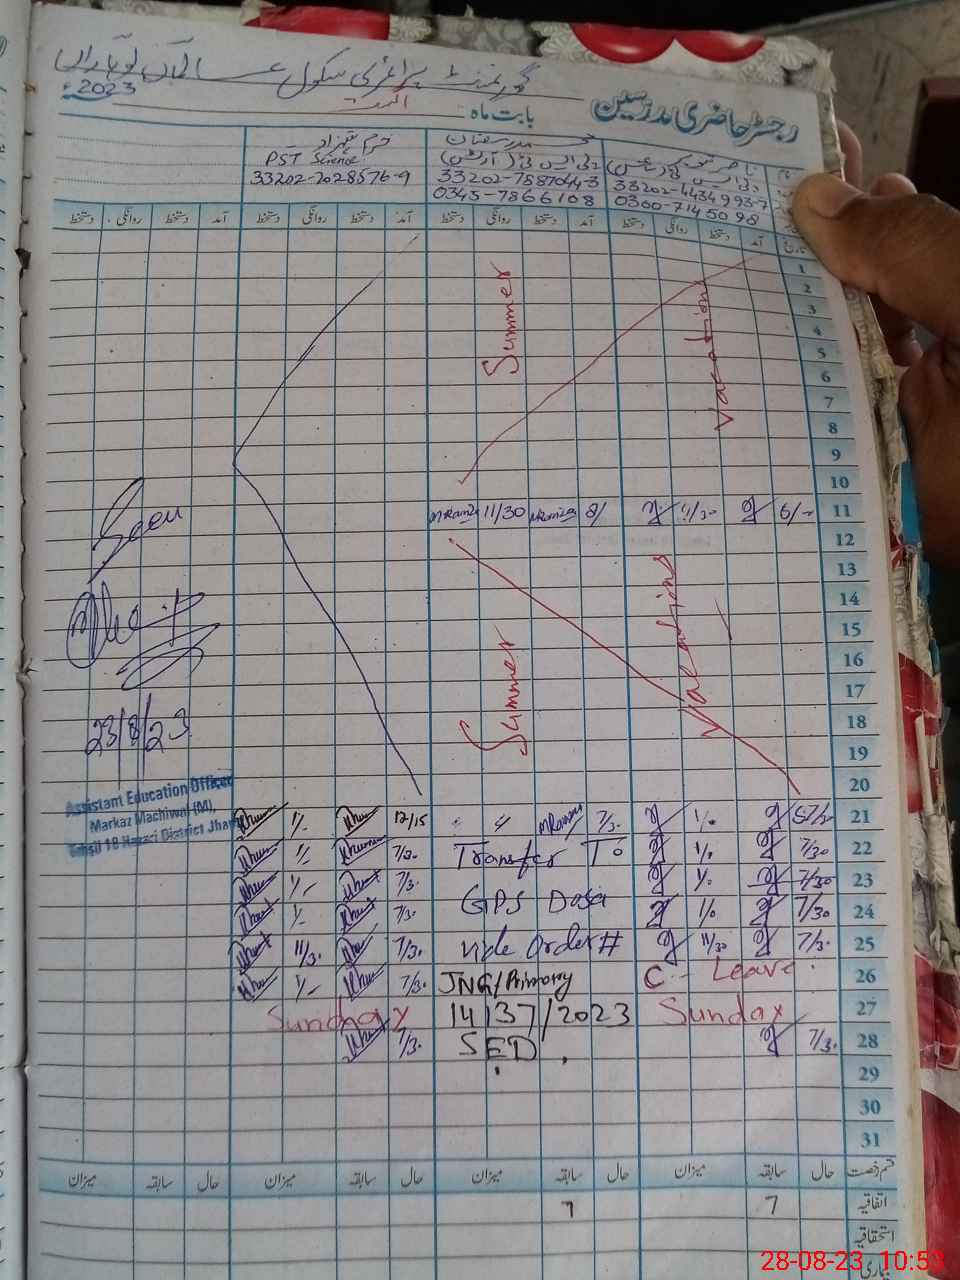 گورنمنٹ پرائمری سکول
رجسٹر حاضری مدرسین
بابت ماہ اگست 2023
خرم شہزاد
PST Science
33202-2028576-9
محمد رمضان
33202-7587044-3
0345-7866108
33202-4434993-7
0300-7145098
تاریخ آمد دستخط روانگی دستخط آمد دستخط روانگی دستخط آمد دستخط روانگی دستخط آمد دستخط روانگی دستخط
1
2
3
4
5
6
7
8
9
10
Summer Vacations
11 6/- 11/30 8/ 11/30
12
13
14
15
16
17
18
19
20
Summer Vacations
Seen
23/8/23
Assistant Education Officer
Markaz Machiwal (M),
Tehsil 18 Hazari District Jhang
21 1/. 7/3. 12/15 1/-
22 7/30 1/. Transfer To 7/3. 1/-
23 7/30 1/. GPS 7/3. 1/-
24 7/30 1/. 7/3. 1/-
25 7/3. 11/30 vide order # 7/3. 11/3.
26 C-Leave JNG/Primary 7/3. 1/-
27 Sunday 14137/2023 Sunday
28 7/3. SED 7/3.
29
30
31
قسم رخصت حال سابقہ میزان حال سابقہ میزان حال سابقہ میزان حال سابقہ میزان
اتفاقیہ 7 7
استحقاقیہ
بیماری
28-08-23 10:53